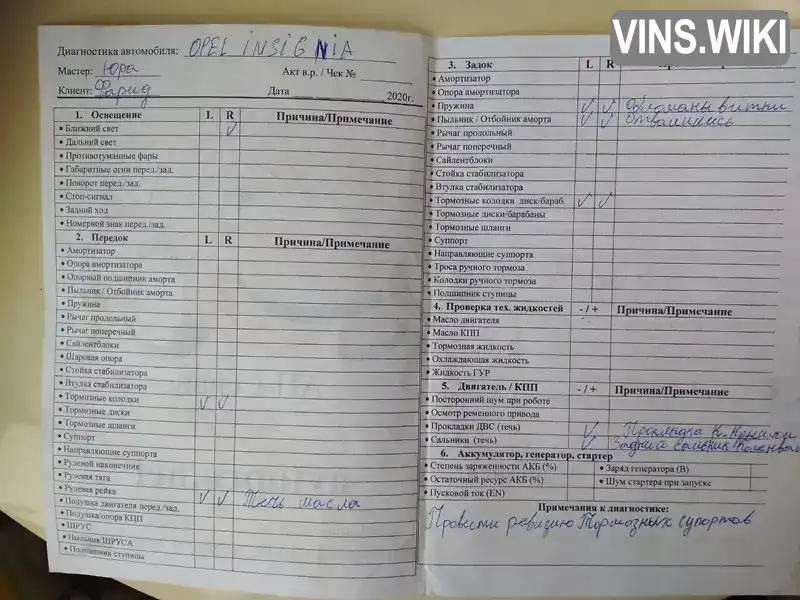 VINS.WIKI
Диагностика автомобиля: OPEL INSIGNIA
Мастер: Юра Акт в.р. / Чек №
Клиент: Фарид Дата 2020г.
1. Освещение L R Причина/Примечание
• Ближний свет ✓
• Дальний свет
• Противотуманные фары
• Габаритные огни перед./зад.
• Поворот перед./зад.
• Стоп-сигнал
• Задний ход
• Номерной знак перед./зад.
2. Передок L R Причина/Примечание
• Амортизатор
• Опора амортизатора
• Опорный подшипник аморта
• Пыльник / Отбойник аморта
• Пружина
• Рычаг продольный
• Рычаг поперечный
• Сайлентблоки
• Шаровая опора
• Стойка стабилизатора
• Втулка стабилизатора
• Тормозные колодки ✓ ✓
• Тормозные диски
• Тормозные шланги
• Суппорт
• Направляющие суппорта
• Рулевой наконечник
• Рулевая тяга
• Рулевая рейка
• Подушка двигателя перед./зад. ✓ ✓ Течь масла
• Подушка/опора КПП
• ШРУС
• Пыльник ШРУСА
• Подшипник ступицы
3. Задок L R
• Амортизатор
• Опора амортизатора
• Пружина ✓ ✓ Обломаны витки
• Пыльник / Отбойник аморта ✓ ✓ Отвалились
• Рычаг продольный
• Рычаг поперечный
• Сайлентблоки
• Стойка стабилизатора
• Втулка стабилизатора
• Тормозные колодки диск/бараб. ✓ ✓
• Тормозные диски/барабаны
• Тормозные шланги
• Суппорт
• Направляющие суппорта
• Троса ручного тормоза
• Колодки ручного тормоза
• Подшипник ступицы
4. Проверка тех. жидкостей - / + Причина/Примечание
• Масло двигателя
• Масло КПП
• Тормозная жидкость
• Охлаждающая жидкость
• Жидкость ГУР
5. Двигатель / КПП - / + Причина/Примечание
• Посторонний шум при роботе
• Осмотр ременного привода
• Прокладки ДВС (течь) ✓ Прокладка К. Крышки
• Сальники (течь) ✓ Задний сальник Коленвал
6. Аккумулятор, генератор, стартер
• Степень заряженности АКБ (%) • Заряд генератора (В)
• Остаточный ресурс АКБ (%) • Шум стартера при запуске
• Пусковой ток (EN)
Примечания к диагностике:
Провести ревизию Тормозных суportов